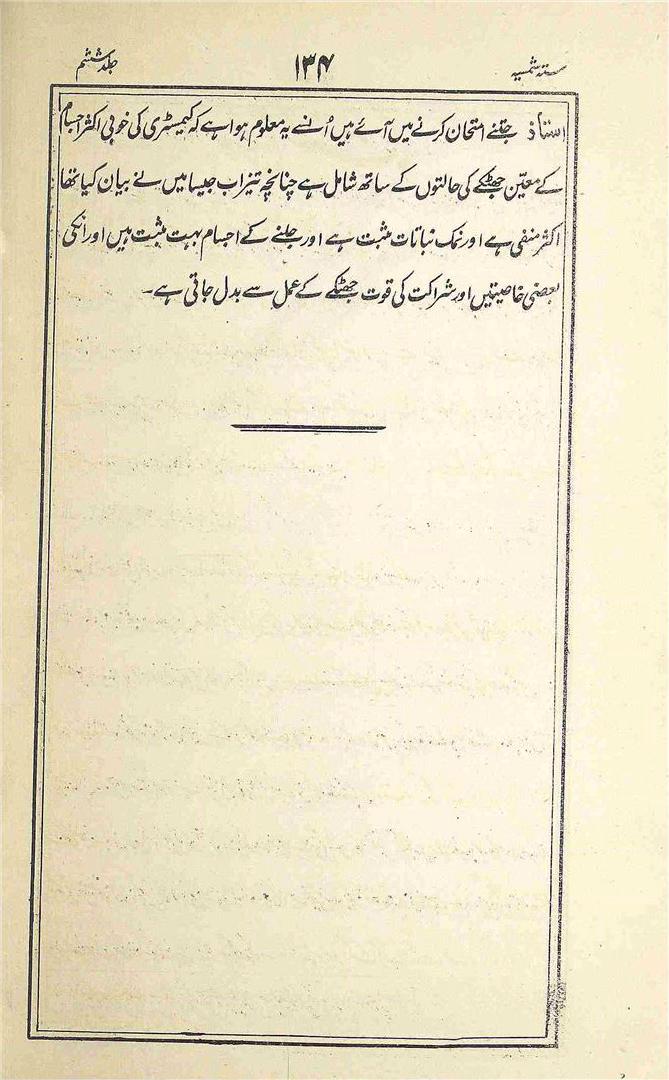 ستہ شمسیہ ۱۳۴ جلد ششم
استاذ جتنے امتحان کرنے میں آئے ہیں اُنسے یہ معلوم ہوا ہے کہ کیمسٹری کی خوبی اکثر اجسام
کے معیّن جھٹکے کی حالتوں کے ساتھ شامل ہے چنانچہ تیزاب جیسا میں نے بیان کیا تھا
اکثر منفی ہے اور نمک نباتات مثبت ہے اور جلنے کے اجسام بہت مثبت ہیں اور انکی
بعضی خاصیتیں اور شراکت کی قوت جھٹکے کے عمل سے بدل جاتی ہے۔